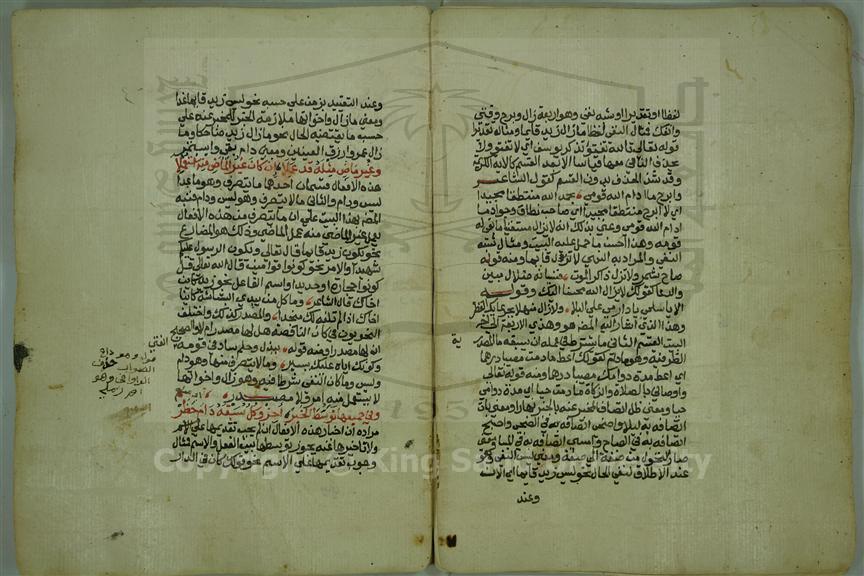 لفظا او تقديرا او شبه نفى وهو اربعة زال وبرح وفتئ
وانفك فمثال النفى لفظا ما زال زيد قايما ومثاله تقديرا
قوله تعالى تالله تفتؤ تذكر يوسف اى لا تفتؤ ولا
يحذف النافى معها قياسا الا بعد القسم كالاية الكريمة
وقد شذ الحذف بدون القسم كقول الشاعر
وابرح ما ادام الله قومى بحمد الله منتطقا مجيدا
اى لا ابرح منتطقا مجيدا اى صاحب نطاق وجواد ما
ادام الله قومى وعنى بذلك انه لا يزال مستغنيا ما بقى له
قومه وهذا احسن ما حمل عليه البيت ومثال شبه
النفى والمراد به النهى لا تزل قايما ومنه قوله
صاح شمر ولا تزل ذاكر الموت فنسيانه ضلال مبين
والدعا كقولك لا يزال الله محسنا اليك وقوله
الا يا اسلمى يا دار مى على البلا ولا زال منهلا بجرعائك القطر
وهذا الذى اشار اليه المصنف وهذى الاربعة الى اخر
البيت القسم الثانى ما يشترط فى عمله ان يسبقه ما المصدرية
الظرفية وهو دام كقولك اعط ما دمت مصيبا درهما
اى اعط مدة دوامك مصيبا درهما ومنه قوله تعالى
واوصانى بالصلاة والزكاة ما دمت حيا اى مدة دوامى
حيا ومعنى ظل اتصاف المخبر عنه بالخبر نهارا ومعنى بات
اتصافه به ليلا واضحى اتصافه به فى الضحى واصبح
اتصافه به فى الصباح وامسى اتصافه به فى المساء ومعنى
صار التحول من صفة الى صفة ومعنى ليس النفى وهو
عند الاطلاق لنفى الحال نحو ليس زيد قايما اى الان
وعند
وعند التقييد بزمن على حسبه نحو ليس زيد قايما غدا
ومعنى ما زال واخواتها ملازمة الخبر المخبر عنه على
حسب ما يقتضيه الحال نحو ما زال زيد ضاحكا وما
زال عمرو ازرق العينين ومعنى دام بقى واستمر
وغير ماض مثله قد عملا ان كان غير الماض منه استعملا
هذه الافعال قسمان احدهما ما يتصرف وهو ما عدا
ليس ودام والثانى ما لا يتصرف وهو ليس ودام فنبه
المصنف بهذا البيت على ان ما يتصرف من هذه الافعال
يعمل غير الماضى منه عمل الماضى وذلك هو المضارع
نحو يكون زيد قايما قال تعالى ويكون الرسول عليكم
شهيدا والامر نحو كونوا قوامين قال الله تعالى قل
كونوا حجارة او حديدا واسم الفاعل نحو زيد كائن
اخاك قال الشاعر وما كل من يبدى البشاشة كائنا
اخاك اذا لم تلفه لك منجدا والمصدر كذلك واختلف
النحويون فى كان الناقصة هل لها مصدر ام لا والصحيح
ان لها مصدرا ومنه قوله ببذل وحلم ساد فى قومه الفتى
وكونك اياه عليك يسير وما لا يتصرف منها وهو دام
وليس وما كان النفى شرطا فيه وهو زال واخواتها
لا يستعمل فيه امر ولا مصدر
وفى جميعها توسط الخبر اجز وكل سبقه دام حظر
مراده ان اخبار هذه الافعال ان لم يجب تقديمها على الاسم
ولا تاخيرها عنه يجوز توسطها بين الفعل والاسم فمثال
وجوب تقديمها على الاسم نحو قولك كان فى الدار